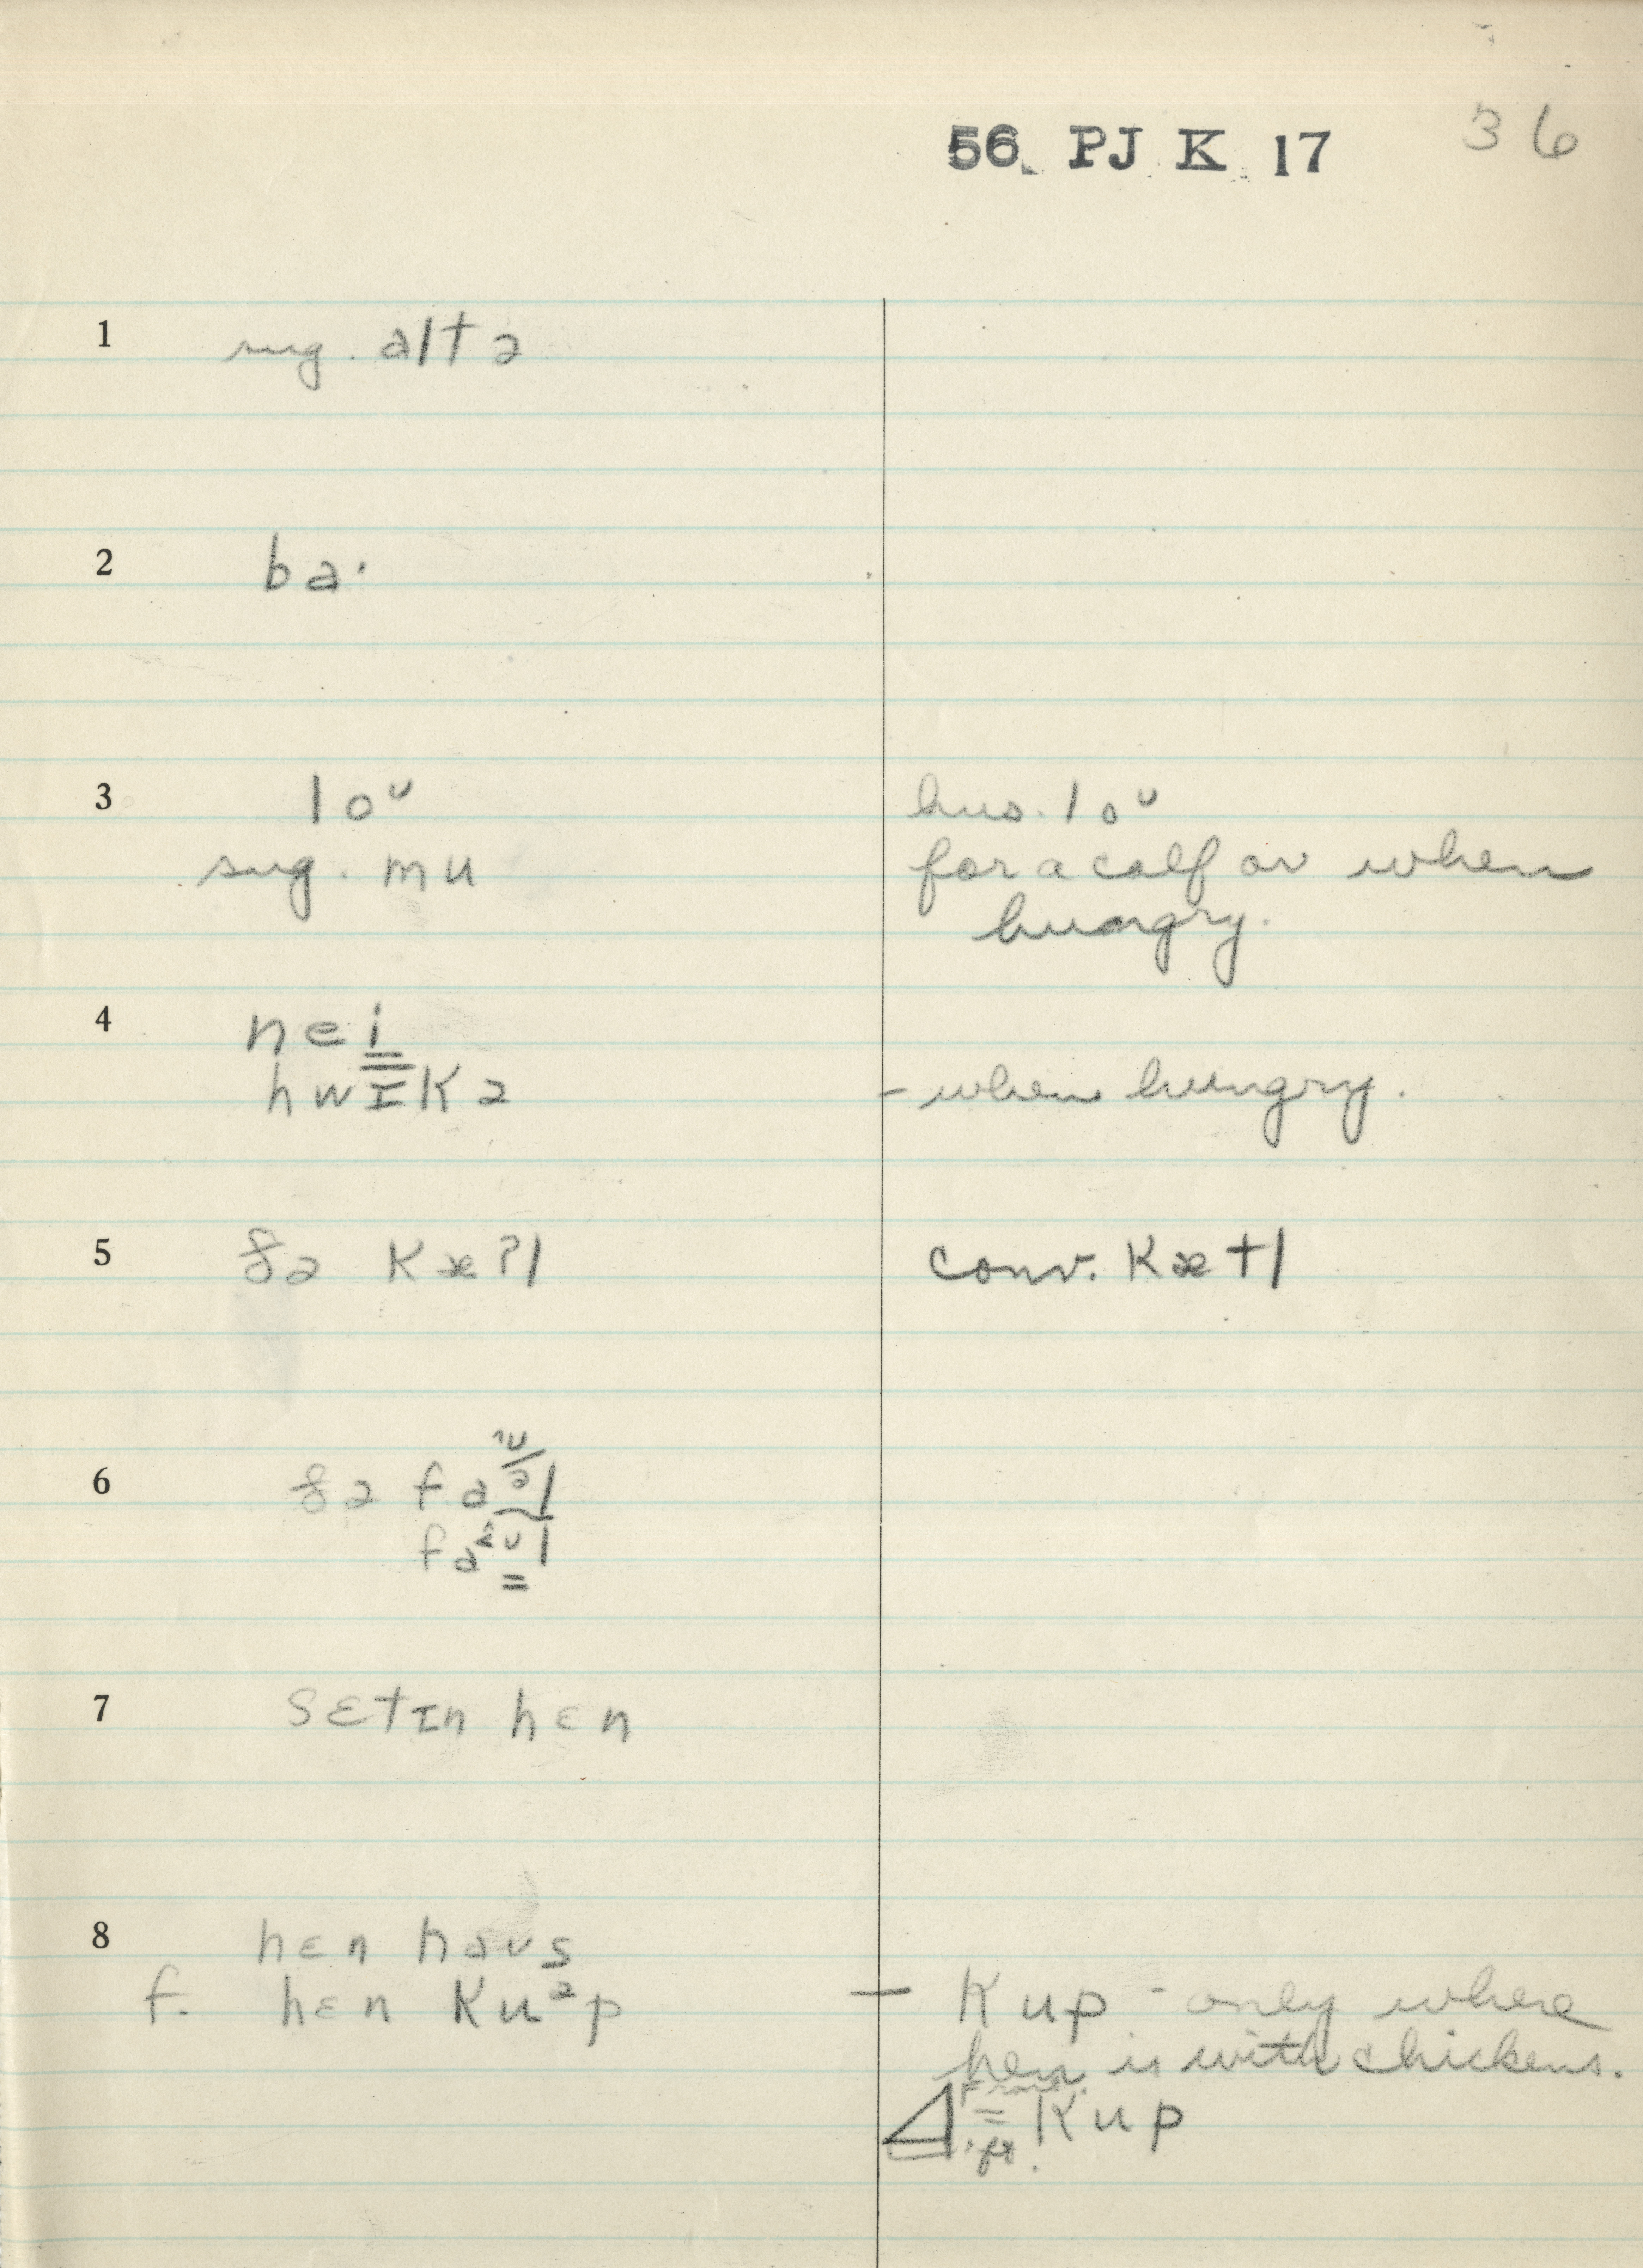 56 PJ K 17 36
1 sug. alt ə
2 ba·
3 loᴜ hus. loᴜ
sug. mu for a calf or when
hungry.
4 nei
hwɪkə - when hungry.
5 ðə kæʔl conv. kætl
6 ðə
7 sɛtɪn hɛn
8 hɛn haus
f. hɛn kuᵊp - kup - only where
hen is with chickens.
= kup